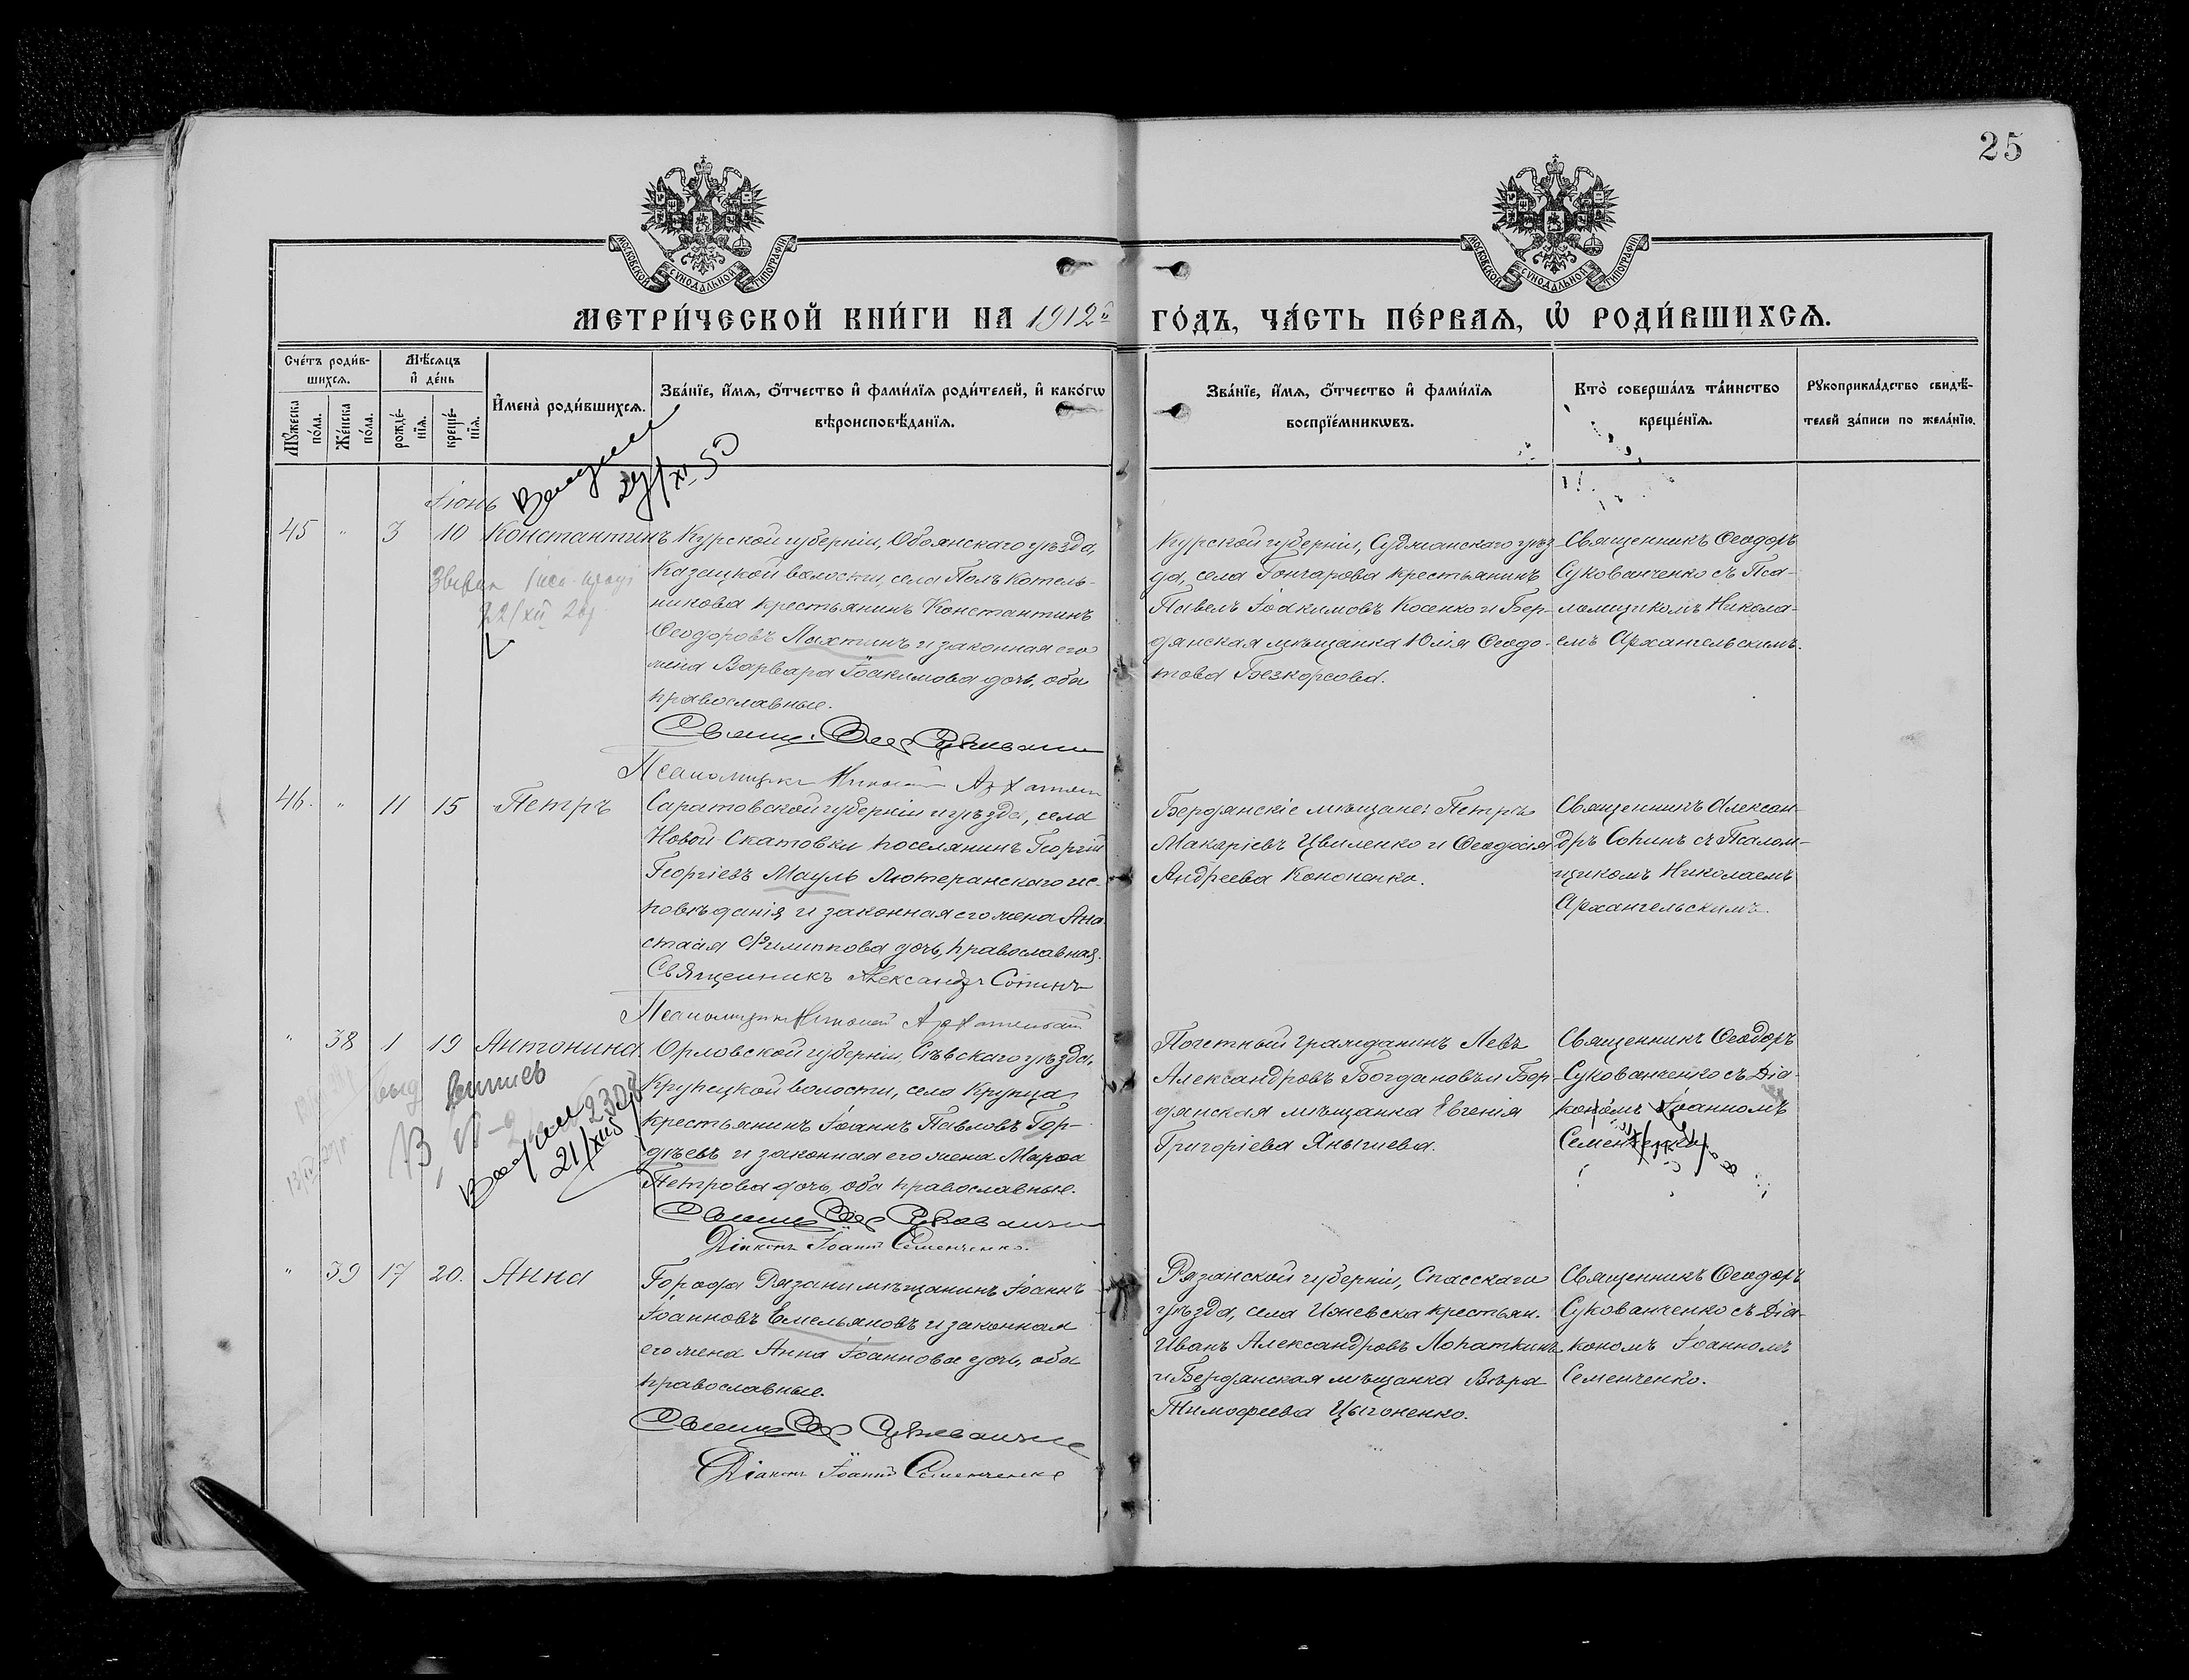 25
МОСКОВСКОЙ СУНОДАЛЬНОЙ ТИПОГРАФІИ
МОСКОВСКОЙ СУНОДАЛЬНОЙ ТИПОГРАФІИ
МЕТРИ́ЧЕСКОЙ КНИ́ГИ НА 1912й ГО́ДЪ, ЧА́СТЬ ПЕ́РВАѦ, Ѡ РОДИ́ВШИХСѦ.
Сче́тъ роди́в-
шихсѧ.
Мѣ́сѧцъ
и де́нь
Мꙋ́жеска
по́ла.
Же́нска
по́ла.
рожде́-
нїѧ.
креще́-
нїѧ.
И҆мена̀ роди́вшихсѧ.
Зва́нїе, и҆́мѧ, ѻ҆́тчество и҆ фами́лїѧ роди́телей, и҆ како́гѡ
вѣроисповѣ́данїѧ.
Зва́нїе, и҆́мѧ, ѻ҆́тчество и҆ фами́лїѧ
воспрїе́мникѡвъ.
Кто̀ соверша́лъ та́инство
креще́нїѧ.
Рꙋкоприкла́дство свидѣ́-
телей за́писи по жела́нїю.
Іюнь
45 " 3 10 Константинъ
Курской губерніи, Обоянскаго уѣзда,
Казацкой волости, села Полъ Котель-
никова крестьянинъ Константинъ
Ѳеодоровъ Лахтинъ и законная его
жена Варвара Іоакимова дочь, оба
православные.
Курской губерніи, Суджанскаго уѣз-
да, села Гончарова крестьянинъ
Павелъ Іоакимовъ Косенко и Бер-
дянская мѣщанка Юлія Ѳеодо-
това Безкорсова.
Священникъ Ѳеодоръ
Сукованченко съ Пса-
ломщикомъ Никола-
емъ Архангельскимъ.
22/XII
Псаломщикъ Николай
46. " 11 15 Петръ
Саратовской губерніи и уѣзда, села
Новой-Скатовки поселянинъ Георгій
Георгіевъ Мауль Лютеранскаго ис-
повѣданія и законная его жена Ана-
стасія Филиппова дочь, православная.
Священникъ Александръ Сопинъ
Псаломщикъ Николай
Бердянскіе мѣщане: Петръ
Макаріевъ Цвиленко и Ѳеодосія
Андреева Кононенко.
Священникъ Алексан-
дръ Сопинъ съ Псалом-
щикомъ Николаемъ
Архангельскимъ.
" 38 1 19 Антонина
Орловской губерніи, Сѣвскаго уѣзда,
Крупецкой волости, села Крупца
крестьянинъ Іоаннъ Павловъ Гор-
дѣевъ и законная его жена Марѳа
Петрова дочь, оба православные.
Діаконъ Іоаннъ Семенченко.
Почетный гражданинъ Левъ
Александровъ Богдановъ и Бер-
дянская мѣщанка Евгенія
Григоріева Янышева.
Священникъ Ѳеодоръ
Сукованченко съ Діа-
кономъ Іоанномъ
Семенченко.
" 39 17 20. Анна
Города Рязани мѣщанинъ Іоаннъ
Іоанновъ Емельяновъ и законная
его жена Анна Іоаннова дочь, оба
православные.
Діаконъ Іоаннъ Семенченко
Рязанской губерніи, Спасскаго
уѣзда, села Ижевска крестьян.
Иванъ Александровъ Лопаткинъ
и Бердянская мѣщанка Вѣра
Тимофеева Цыгоненко.
Священникъ Ѳеодоръ
Сукованченко съ Діа-
кономъ Іоанномъ
Семенченко.